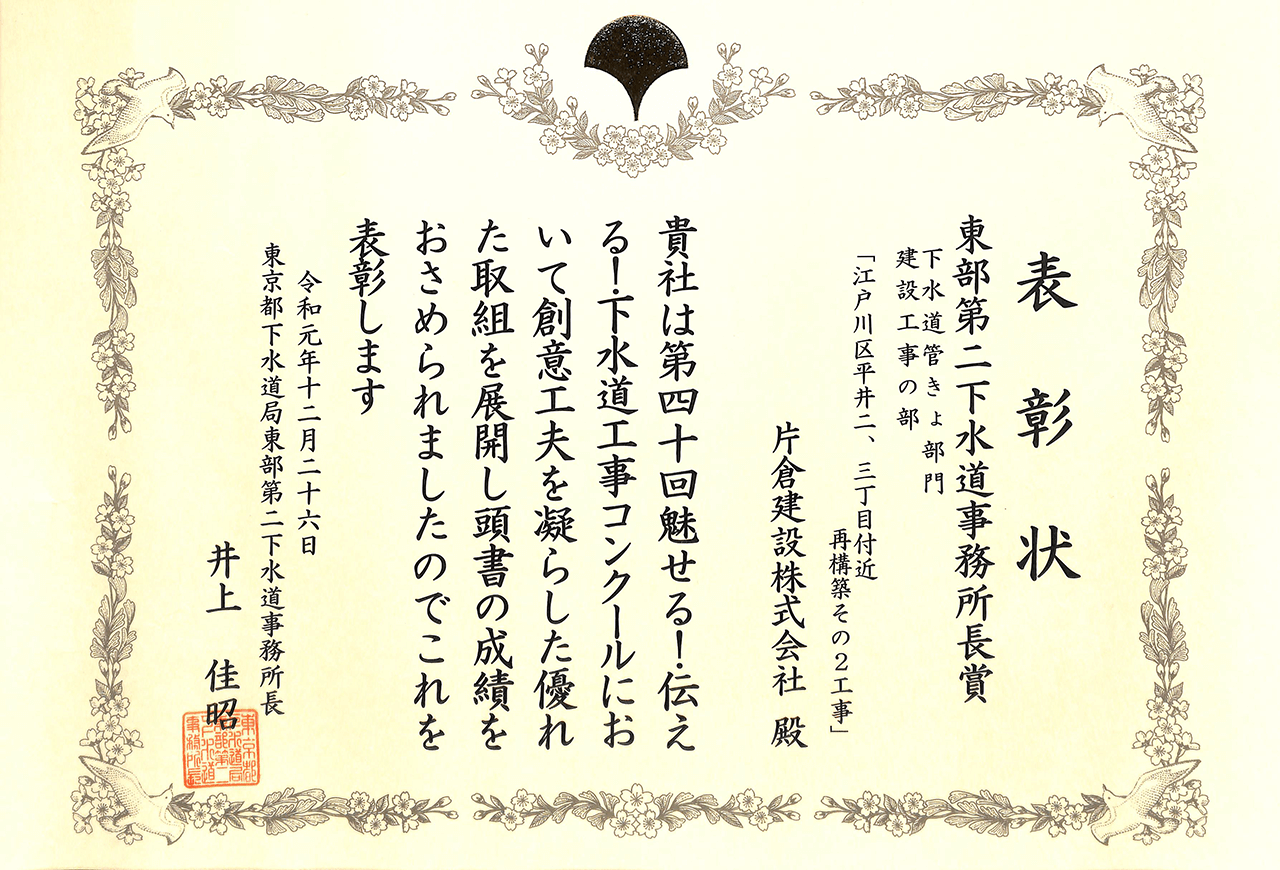 表彰状
東部第二下水道事務所長賞
下水道管きょ部門
建設工事の部
「江戸川区平井二、三丁目付近
再構築その２工事」
片倉建設株式会社 殿
貴社は第四十回魅せる！伝え
る！下水道工事コンクールにお
いて創意工夫を凝らした優れ
た取組を展開し頭書の成績を
おさめられましたのでこれを
表彰します
令和元年十二月二十六日
東京都下水道局東部第二下水道事務所長
井上 佳昭
東京都
下水道局
東部第二
下水道
事務所長